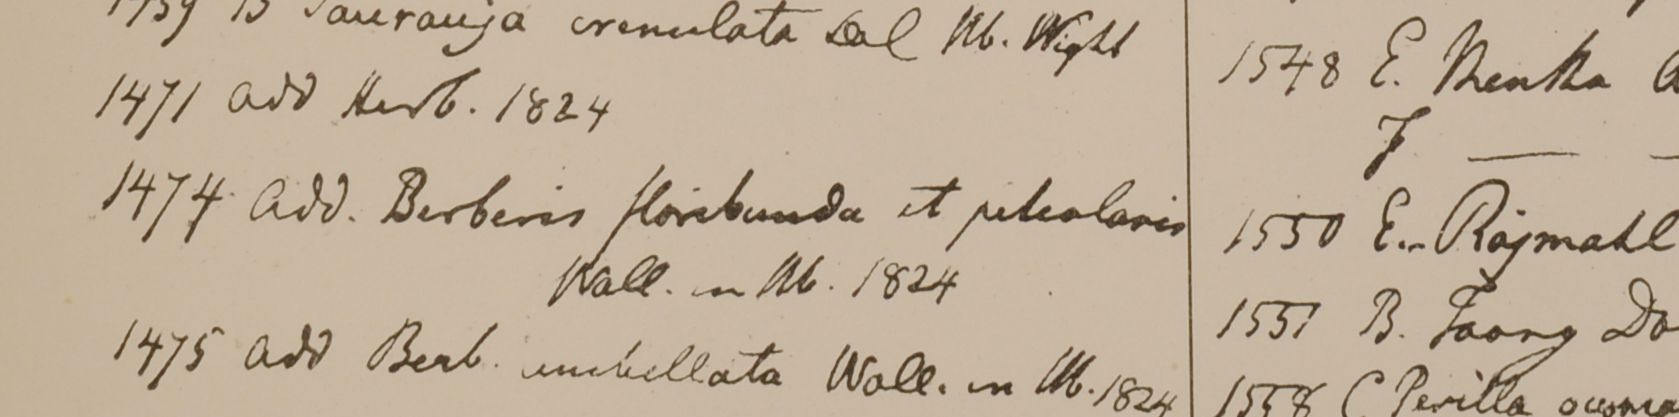 1459 B Saurauja crenulata Dal Hb. Wight
1471 add Herb. 1824
1474 add. Berberis floribunda et petiolaris
Wall. in Hb. 1824
1475 add Berb. umbellata Wall. in Hb. 1824
1548 E.
F —
1550 E. Rajmahl
1551 B. Taong Do
1558 C Perilla